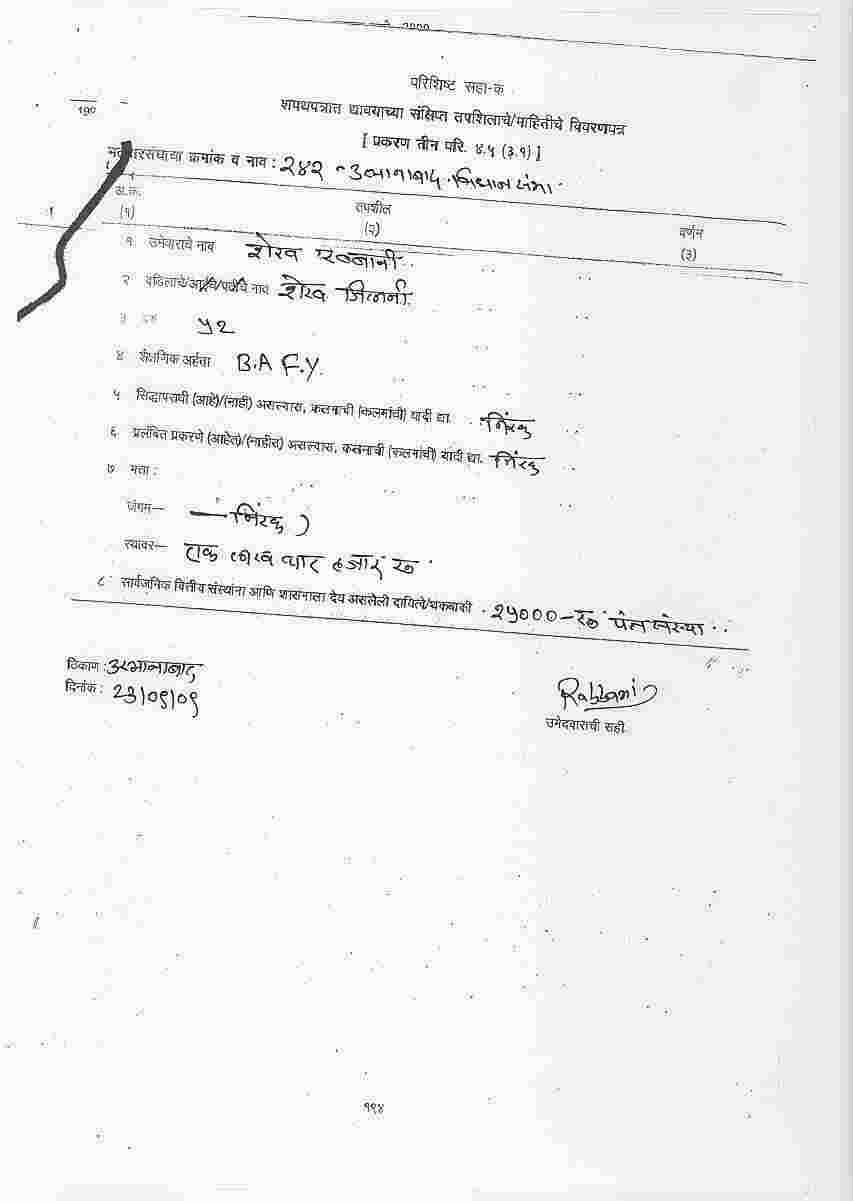 २०००
परिशिष्ट सहा-क
१७०
शपथपत्रात द्यावयाच्या संक्षिप्त तपशिलाचे/माहितीचे विवरणपत्र
[ प्रकरण तीन परि. ४.५ (३.१) ]
क्रमांक व नाव : २४२ - उस्मानाबाद विधान सभा
अ.क्र. तपशील वर्णन
(१) (२) (३)
१ उमेवाराचे नाव शेख रब्बानी
२ वडिलाचे/आईचे/पतीचे नाव शेख जिलानी
३ वय ५२
४ शैक्षणिक अर्हता B.A F.Y.
५ सिद्धापराधी (आहे)/(नाही) असल्यास, कलमाची (कलमांची) यादी द्या. निरंक
६ प्रलंबित प्रकरणे (आहेत)/(नाहीत) असल्यास, कलमाची (कलमांची) यादी द्या. निरंक
७ मत्ता :
जंगम— — निरंक
स्थावर— एक लाख चार हजार रु
८ सार्वजनिक वित्तीय संस्थांना आणि शासनाला देय असलेली दायित्वे/थकबाकी २५०००-रु पत संस्था
ठिकाण : उस्मानाबाद
दिनांक : 23/09/09
Rabbani
उमेदवाराची सही
१९४